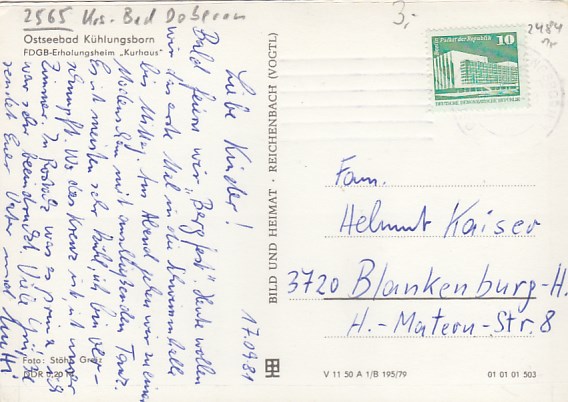 2565 Krs. Bad Doberan
3,-
2484
Ostseebad Kühlungsborn
FDGB-Erholungsheim „Kurhaus"
Palast der Republik 10
DEUTSCHE DEMOKRATISCHE REPUBLIK
17.09.81
Liebe Kinder!
Bald feiern wir „Bergfest". Heute wollen
wir das erste Mal in die Schwimmhalle
bis Mittag. Am Abend gehen wir zu einem
mit anschließendem Tanz.
Es ist meistens sehr kühl, ich bin ver-
schnupft. Wo das Kreuz ist, ist unser
Zimmer. In Rostock war es prima, ich
war sehr beeindruckt. Viele Grüße
sendet Euer Vater und Mutti
BILD UND HEIMAT · REICHENBACH (VOGTL)
Fam.
Helmut Kaiser
3720 Blankenburg-H.
H.-Matern-Str. 8
Foto: Stöhr, Greiz
DDR 0,20 M
V 11 50 A 1/B 195/79
01 01 01 503